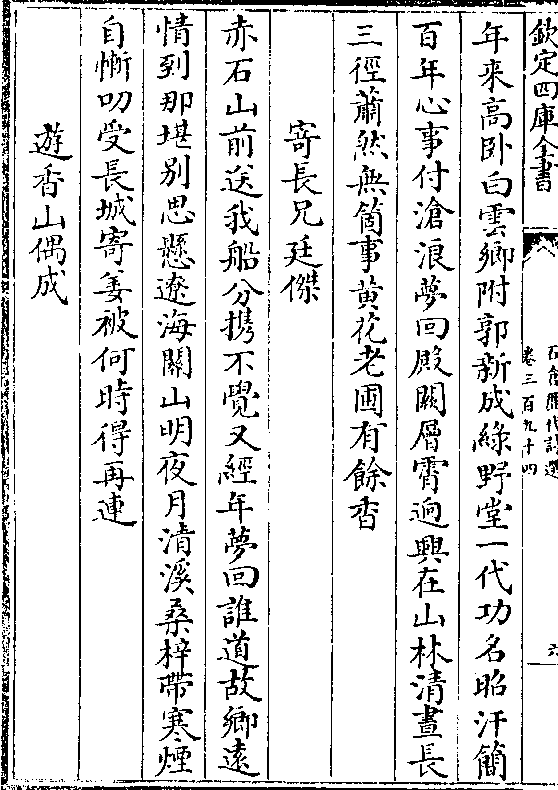 欽定四庫全書
石倉歷代詩選
卷三百九十四
六
年来高卧白雲鄉附郭新成綠野堂一代功名昭汗簡
百年心事付滄浪夢回殿闕層霄逈興在山林清晝長
三徑蕭然無箇事黄花老圃有餘香
寄長兄廷傑
赤石山前送我船分携不覺又經年夢回誰道故鄉遠
情到那堪别思懸遼海關山明夜月清溪桑梓帶寒煙
自慚叨受長城寄姜被何時得再連
遊香山偶成